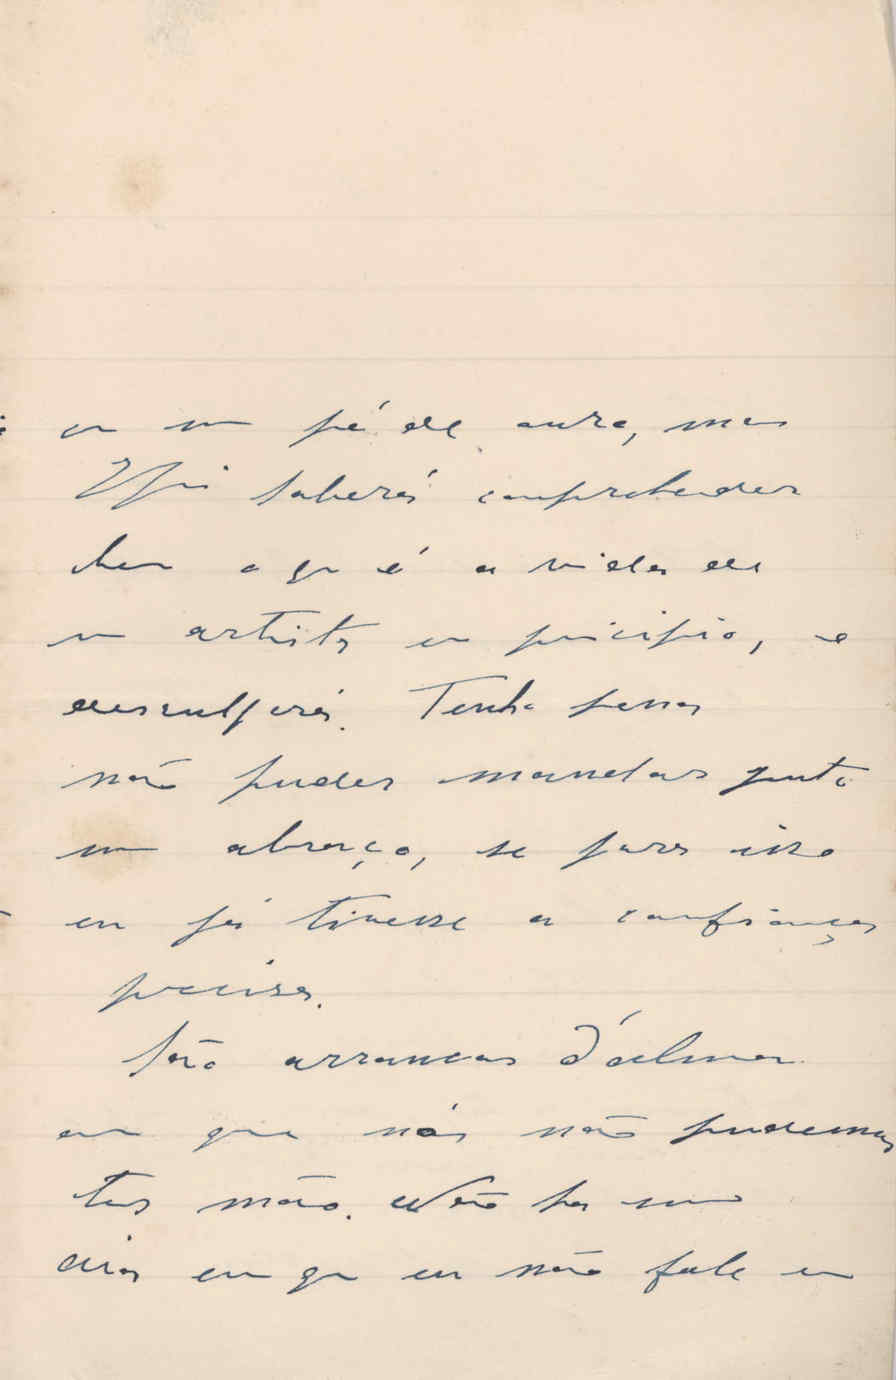 em um pé de aura, mas
saberá comprehender
bem o que é a vida de
um artista em principio, e
desculpará. Tenho pena
não puder mandar junto
um abraço, se para isso
eu já tivesse a confiança
precisa.
São arrancos d'alma
em que nós não pudemos
ter mão. Não ha um
dia em que eu não fale em